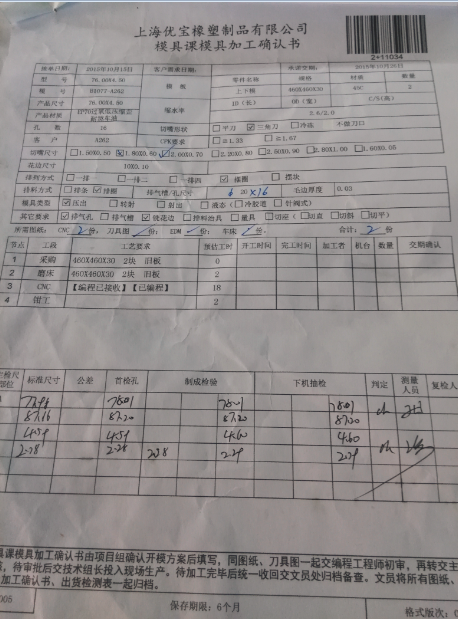 上海优宝橡塑制品有限公司
模具课模具加工确认书
2+11034
接单日期: 2015年10月15日 客户需求日期: 承诺交期: 2015年10月25日
型 号 76.00X4.50 模 板 零件名称 规格 材质 数量
模 号 81077-A262 上下模 460X460X30 45C 2
产品尺寸 76.00X4.50 缩水率 10(长) 08(宽) C/S(高)
产品材质 2.6/2.0
孔 数 16 切嘴形状 □平刀 ☑三角刀 □冷冻 不掘刀口
客 户 A262 CPK要求 □≥1.33 □≥1.67
切嘴尺寸 □1.60X0.50 ☑1.80X0.60 ☑2.00X0.70 □2.20X0.80 □2.60X0.90 □2.80X1.00
花边尺寸 10X0.10
排列方式 □一排一 □一排二 □一排四 ☑接圈 □摆块
排料方式 □排条 ☑排圈 排气槽/孔尺寸 6 20 ×16 毛边厚度 0.03
模具类型 ☑压出 □转射 □射出 □液态(□冷胶道 □针阀式)
其它要求 ☑排气孔 □排气槽 ☑铣花边 □控料台勾 □量具 □切座(□切直 □切斜 □切平)
所需图纸: CNC 2份; 刀具图 份; EDM 份; 车床 份; 合计: 2份
节点 工段 工艺要求 预估工时 开工时间 完工时间 加工者 机台 数量 交期确认
1 采购 460X460X30 2块 旧板 0
2 磨床 460X460X30 2块 旧板 2
3 CNC 【编程已接收】【已编程】 18
4 钳工 2
标准尺寸 公差 首检孔 制成检验 下机抽检 判定 测量人员 复检人
78.01 78.01 78.01 ok
87.16 87.20 87.20 87.20
4.59 4.59 4.60 4.60
2.28 2.28 2.28 2.29 2.29 ok
具课模具加工确认书由项目组确认开模方案后填写，同图纸、刀具图一起交编程工程师初审，再转交主
，待审批后交技术组长投入现场生产。待加工完毕后统一收回交文员处归档备查。文员将所有图纸、
加工确认书、出货检测表一起归档。
005 保存期限：6个月 格式版次：